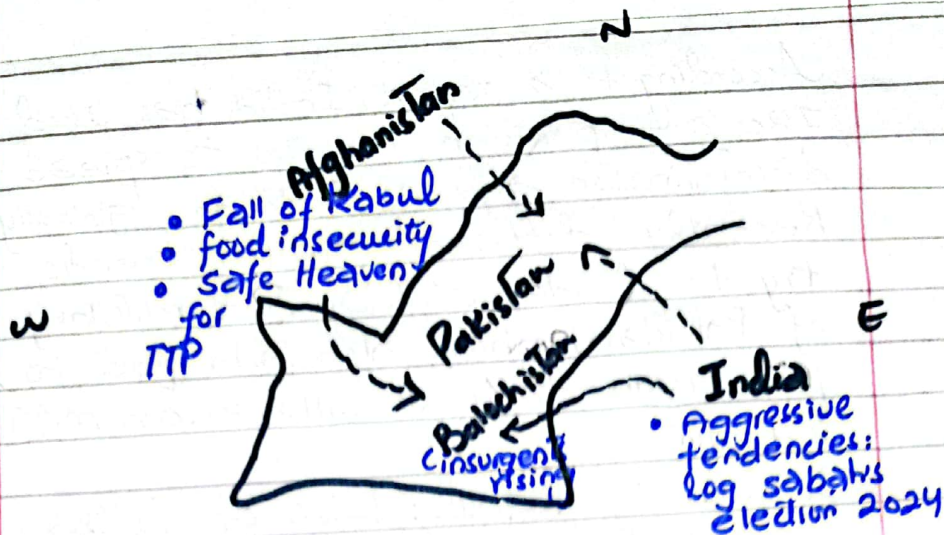 N
Afghanistan
• Fall of Kabul
• food insecurity
• safe Heaven
for
TTP
W
E
Pakistan
Balochistan
(insurgent
rising
India
• Aggressive
tendencies:
log sabahs
election 2024